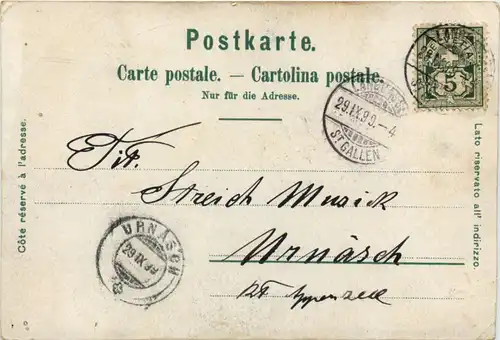 Postkarte.
Carte postale. — Cartolina postale.
Nur für die Adresse.
Côté réservé à l'adresse.
Lato riservato all' indirizzo.
5
29.IX.99.-4
ST GALLEN
Tit.
Streich Musick
Urnäsch
Kt Appenzell
URNÄSCH
29 IX 99